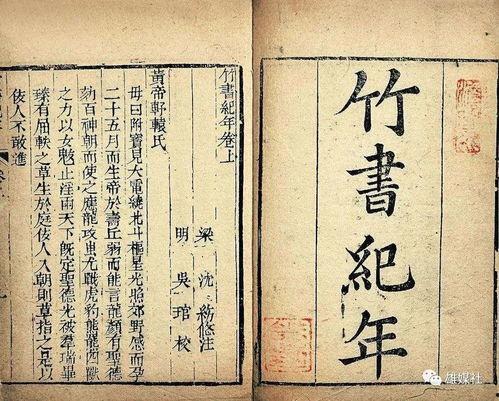 竹書紀年
竹書紀年卷上
梁 沈約附注
明 吳琯 校
黃帝軒轅氏
母曰附寶見大電繞北斗樞星光照郊野感而孕
二十五月而生帝於壽丘弱而能言龍顏有聖德
劾百神朝而使之應龍攻蚩尤戰虎豹熊羆四獸
之力以女魃止淫雨天下既定聖德光被羣瑞畢
臻有屈軼之草生於庭佞人入朝則草指之是以
佞人不敢進
雄媒社